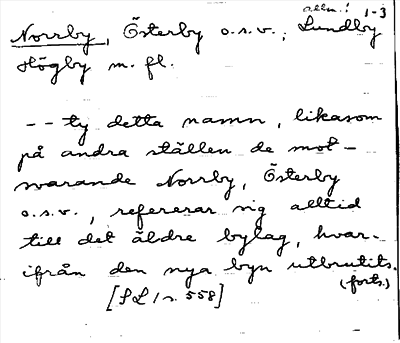 allm.! 1-3
Norrby, Österby o.s.v.; Lundby
Högby m. fl.
-- ty detta namn, likasom
på andra ställen de mot-
svarande Norrby, Österby
o.s.v., refererar sig alltid
till det äldre bylag, hvar-
ifrån den nya byn utbrutits.
(forts.)
[SL 1 s. 558]